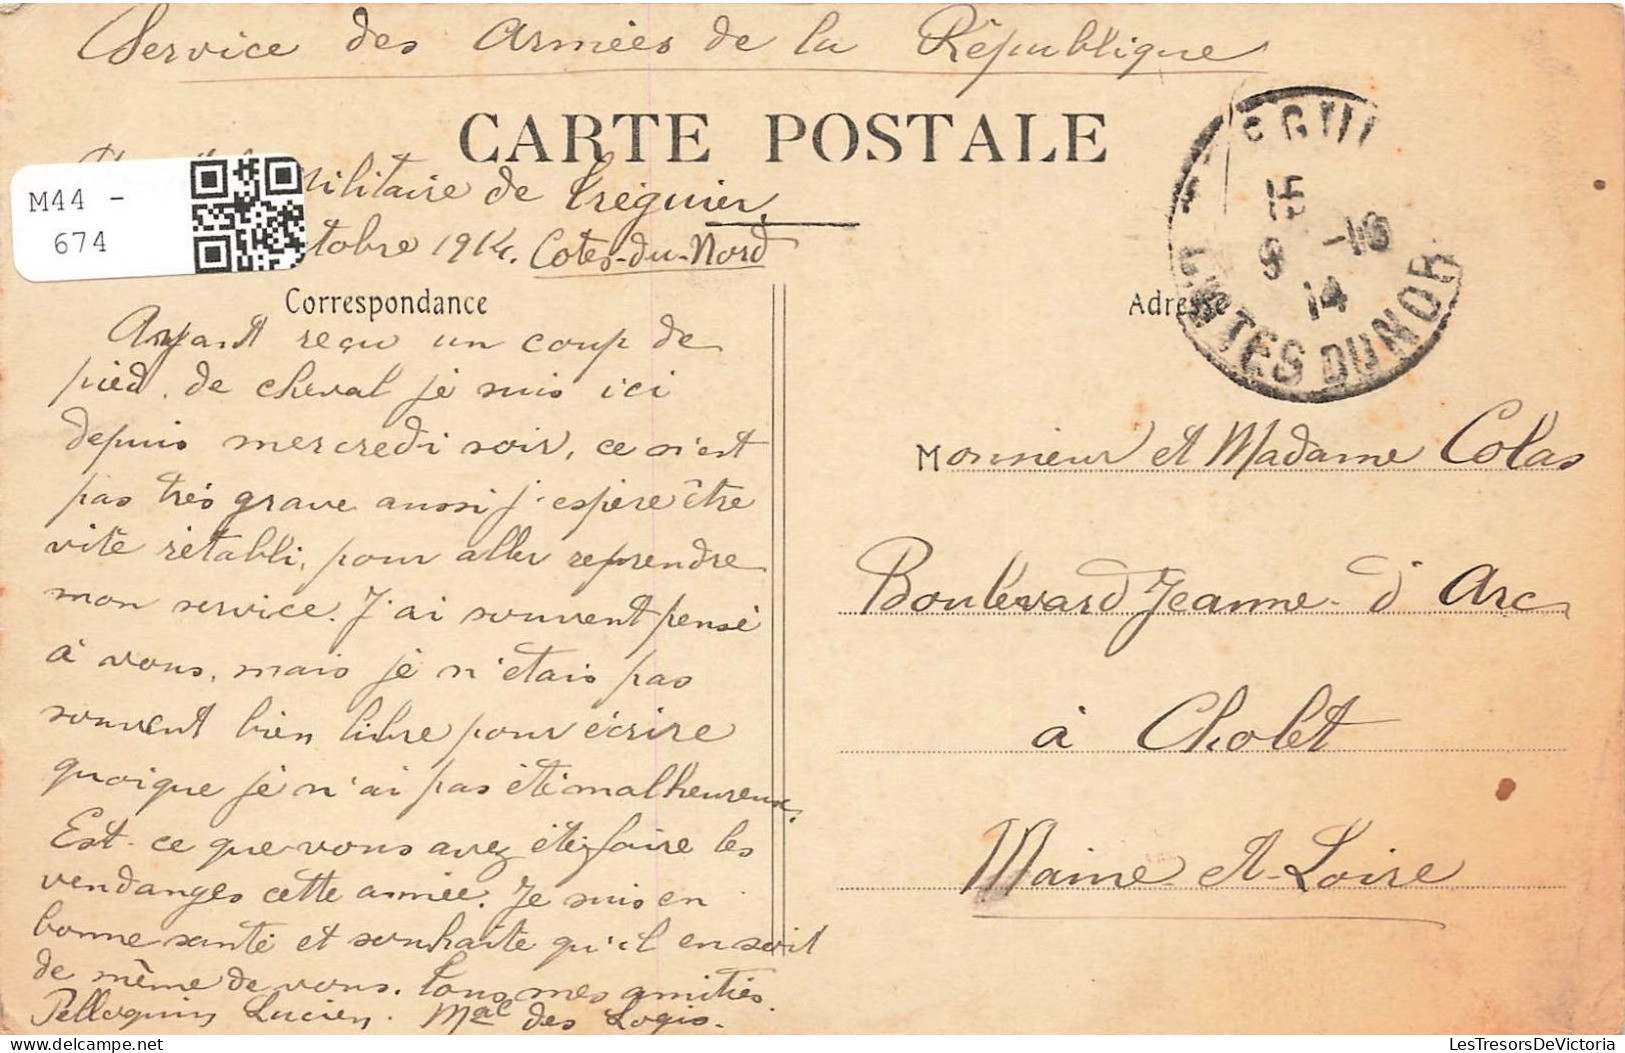 Service des Armées de la République
CARTE POSTALE
Militaire de Tréguier.
M44 -
674
octobre 1914. Cotes-du-Nord
15
9 -10
14
COTES DU NORD
Correspondance
Adresse
Ayant reçu un coup de
pied de cheval je suis ici
depuis mercredi soir, ce n'est
pas très grave aussi j'espère être
vite rétabli, pour aller reprendre
mon service. J'ai souvent pensé
à vous, mais je n'étais pas
souvent bien libre pour écrire
quoique je n'ai pas été malheureux.
Est-ce que vous avez été faire les
vendanges cette année. Je suis en
bonne santé et souhaite qu'il en soit
de même de vous. Tous mes amitiés.
Pelloquin Lucien. Mal des Logis.
Monsieur et Madame Colas
Boulevard Jeanne-d'Arc
à Cholet
Maine-et-Loire
LesTresorsDeVictoria